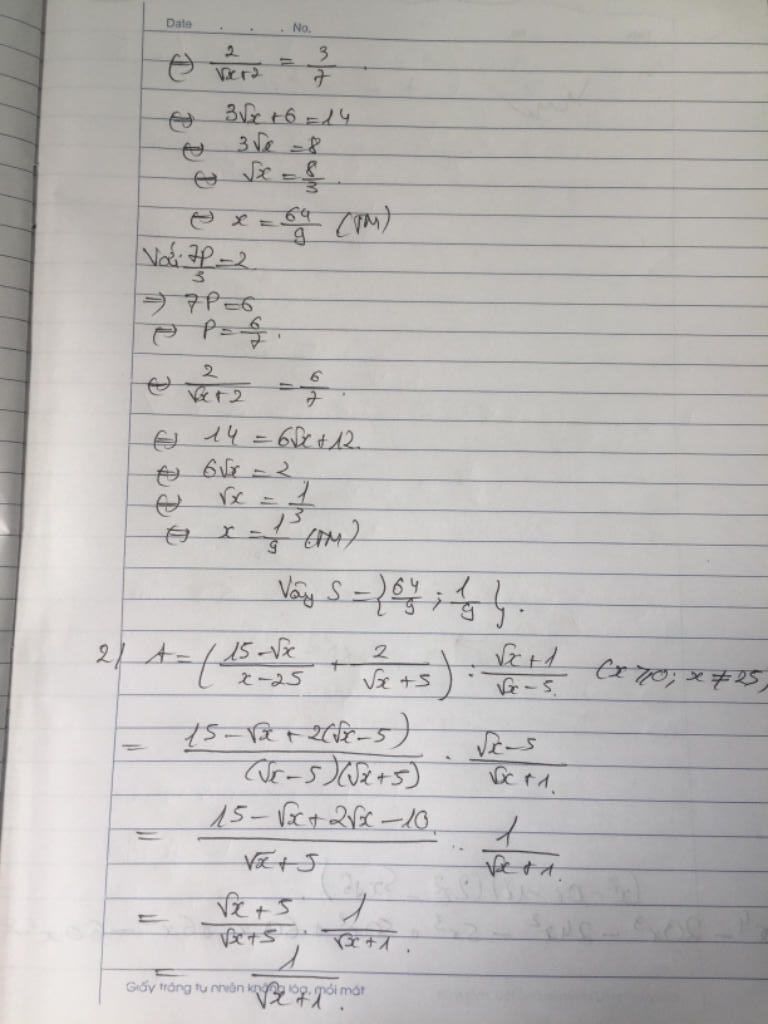 Date . . . No.
(=) 2/(√x+2) = 3/7.
(=) 3√x + 6 = 14
(=) 3√x = 8
(=) √x = 8/3.
(=) x = 64/9 (TM)
Với 7P/3 = 2
=) 7P = 6
(=) P = 6/7.
(=) 2/(√x+2) = 6/7.
(=) 14 = 6√x + 12.
(=) 6√x = 2
(=) √x = 1/3
(=) x = 1/9 (TM)
Vậy S = {64/9 ; 1/9}.
2/ A = ((15-√x)/(x-25) + 2/(√x+5)) : (√x+1)/(√x-5) (x ≥ 0; x ≠ 25)
= (15-√x+2(√x-5))/((√x-5)(√x+5)) . (√x-5)/(√x+1).
= (15-√x+2√x-10)/(√x+5) . 1/(√x+1).
= (√x+5)/(√x+5) . 1/(√x+1).
= 1/(√x+1).
Giấy trắng tự nhiên không lóa, mỏi mắt